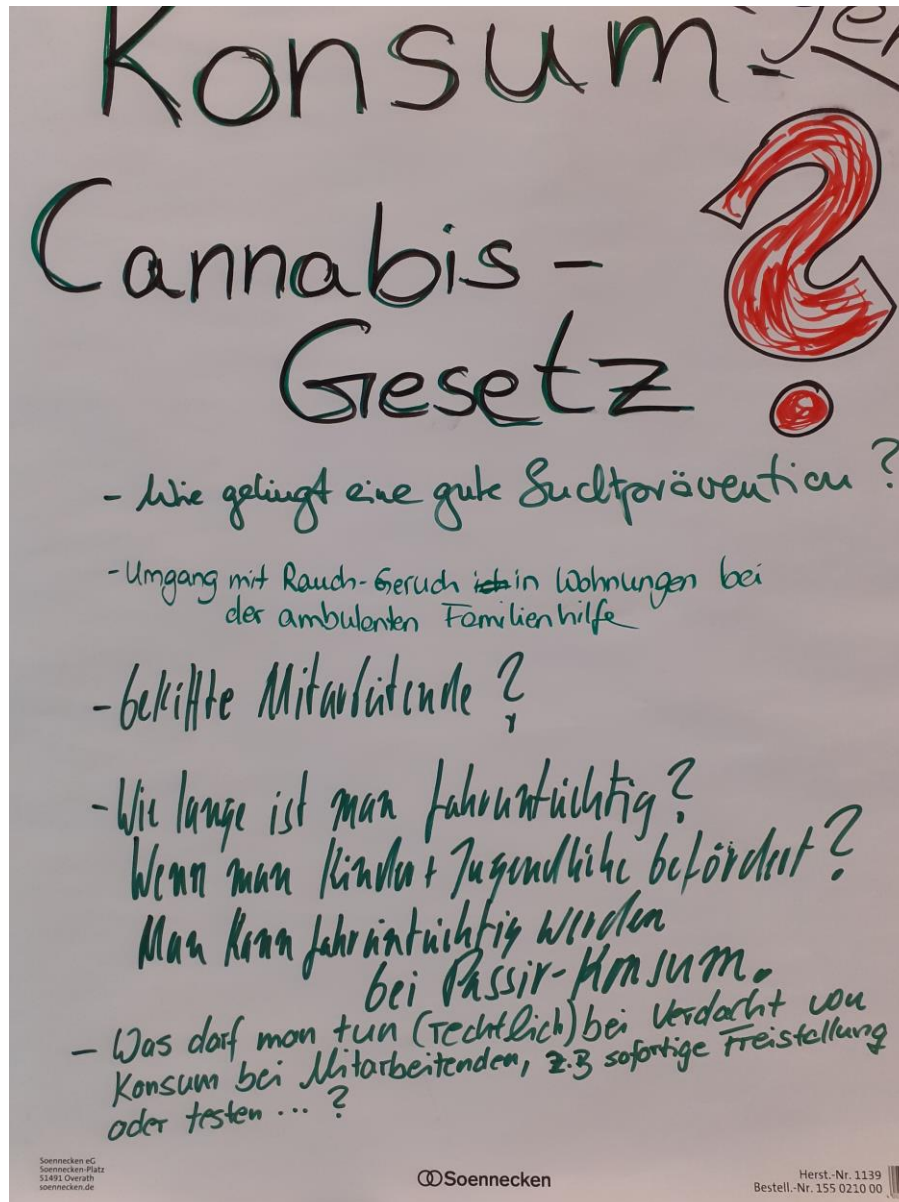 Konsum-
Cannabis-
Gesetz ?
- Wie gelingt eine gute Suchtprävention ?
- Umgang mit Rauch-Geruch in Wohnungen bei
der ambulenten Familienhilfe
- bekiffte Mitarbeitende ?
- Wie lange ist man fahruntüchtig ?
Wenn man Kinder + Jugendliche befördert ?
Man kann fahruntüchtig werden
bei Passiv-Konsum.
- Was darf man tun (rechtlich) bei Verdacht von
Konsum bei Mitarbeitenden, z.B sofortige Freistellung
oder testen ... ?
Soennecken eG
Soennecken-Platz
51491 Overath
soennecken.de
Soennecken
Herst.-Nr. 1139
Bestell.-Nr. 155 0210 00